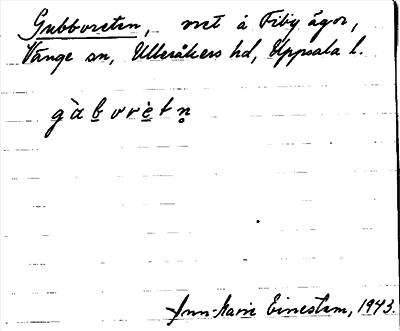 Gubbvreten, vret å Fiby ägor,
Vänge sn, Ulleråkers hd, Uppsala l.
gàbvrètn̥
Ann-Marie Einestam, 1943.